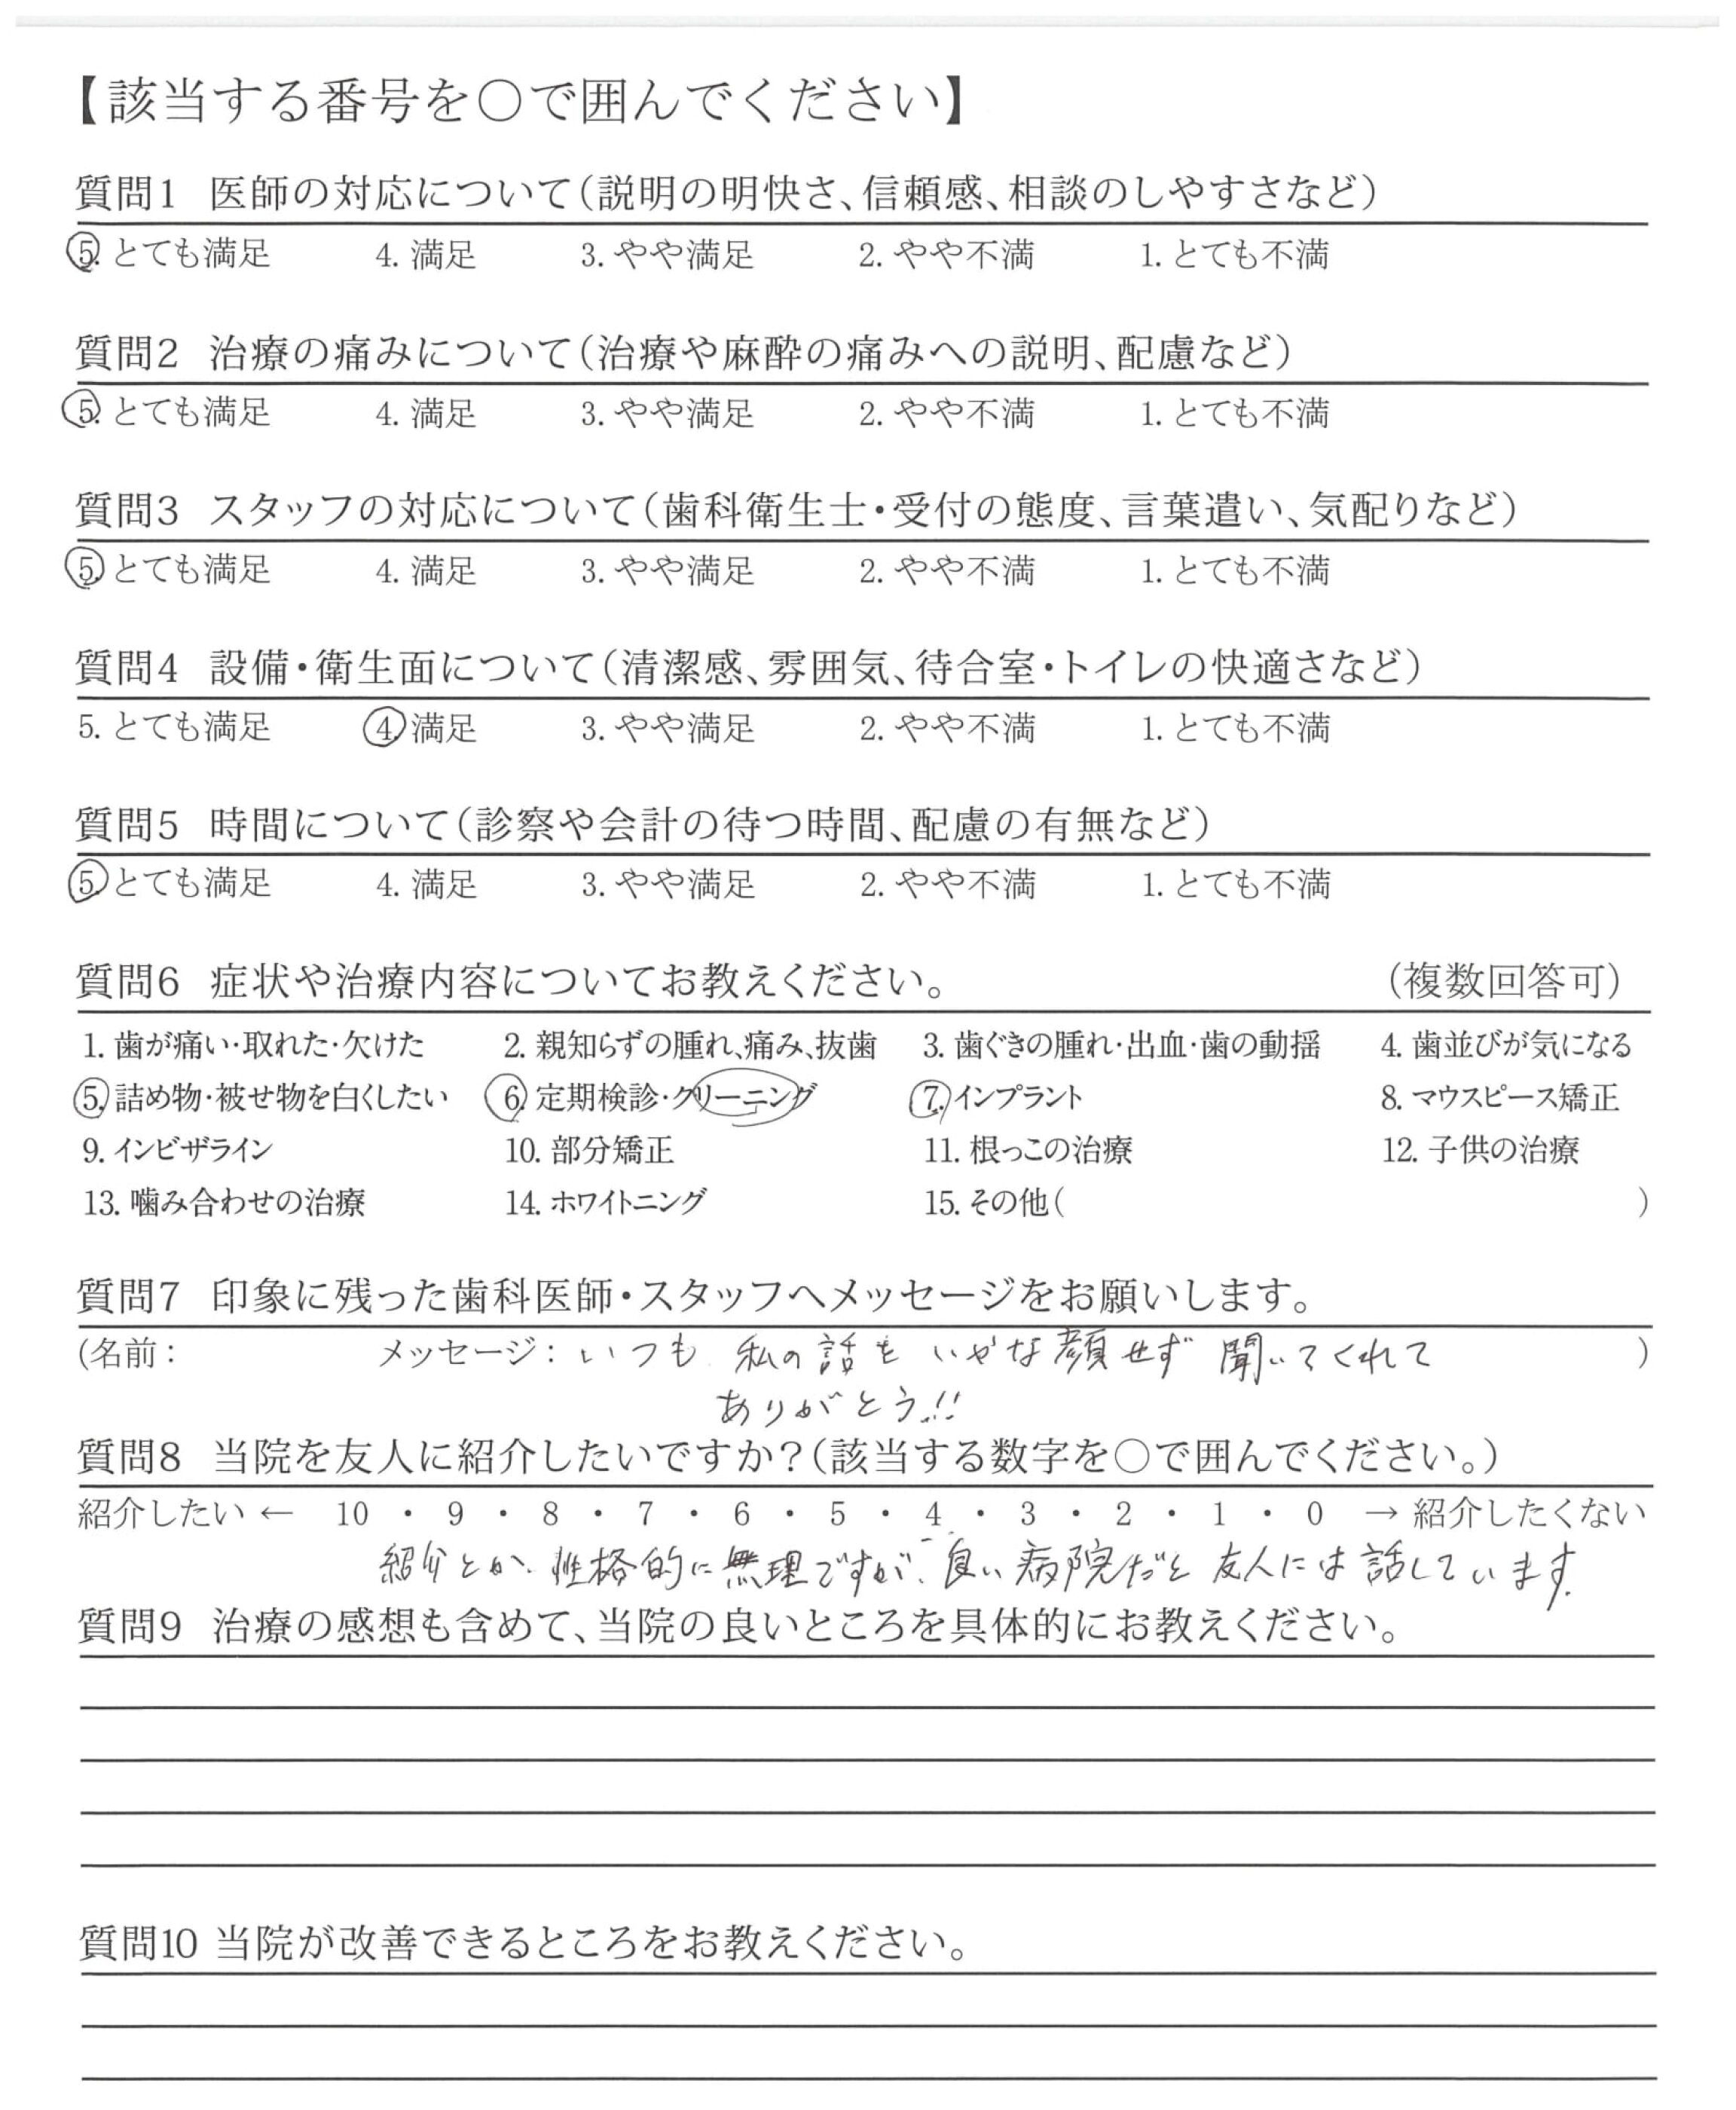 【該当する番号を○で囲んでください】
質問1 医師の対応について(説明の明快さ、信頼感、相談のしやすさなど)
5. とても満足 4. 満足 3. やや満足 2. やや不満 1. とても不満
質問2 治療の痛みについて(治療や麻酔の痛みへの説明、配慮など)
5. とても満足 4. 満足 3. やや満足 2. やや不満 1. とても不満
質問3 スタッフの対応について(歯科衛生士・受付の態度、言葉遣い、気配りなど)
5. とても満足 4. 満足 3. やや満足 2. やや不満 1. とても不満
質問4 設備・衛生面について(清潔感、雰囲気、待合室・トイレの快適さなど)
5. とても満足 4. 満足 3. やや満足 2. やや不満 1. とても不満
質問5 時間について(診察や会計の待つ時間、配慮の有無など)
5. とても満足 4. 満足 3. やや満足 2. やや不満 1. とても不満
質問6 症状や治療内容についてお教えください。 (複数回答可)
1. 歯が痛い・取れた・欠けた 2. 親知らずの腫れ、痛み、抜歯 3. 歯ぐきの腫れ・出血・歯の動揺 4. 歯並びが気になる
5. 詰め物・被せ物を白くしたい 6. 定期検診・クリーニング 7. インプラント 8. マウスピース矯正
9. インビザライン 10. 部分矯正 11. 根っこの治療 12. 子供の治療
13. 噛み合わせの治療 14. ホワイトニング 15. その他( )
質問7 印象に残った歯科医師・スタッフへメッセージをお願いします。
(名前: メッセージ: いつも 私の話を いやな顔せず 聞いてくれて )
ありがとう!!
質問8 当院を友人に紹介したいですか?(該当する数字を○で囲んでください。)
紹介したい ← 10 ・ 9 ・ 8 ・ 7 ・ 6 ・ 5 ・ 4 ・ 3 ・ 2 ・ 1 ・ 0 → 紹介したくない
紹介とか、性格的に無理ですが、良い病院だと 友人には話しています。
質問9 治療の感想も含めて、当院の良いところを具体的にお教えください。
質問10 当院が改善できるところをお教えください。